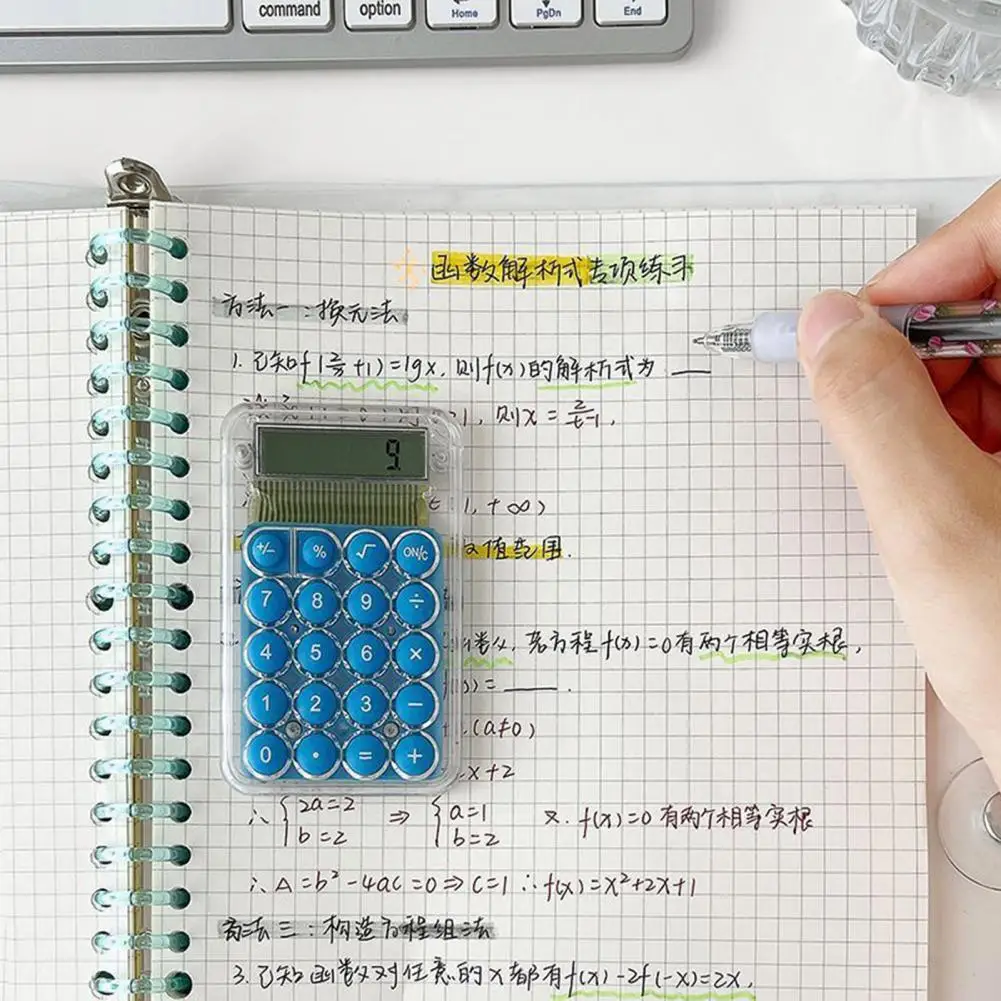 command option Home PgDn End
函数解析式专项练习
方法一:换元法
1. 已知f(2/x+1)=lgx, 则f(x)的解析式为 ___
1, 则x = 2/t-1,
9.
1, +∞)
+/- % √ ON/C
值范围.
7 8 9 ÷
若方程f(x)=0有两个相等实根,
4 5 6 ×
)= ___.
1 2 3 −
(a≠0)
0 · = +
x+2
∴ {2a=2 b=2 ⇒ {a=1 b=2 又. f(x)=0有两个相等实根
∴ Δ=b²-4ac=0⇒c=1 ∴f(x)=x²+2x+1
方法三:构造方程组法
3. 已知函数对任意的x都有f(x)-2f(-x)=2x,